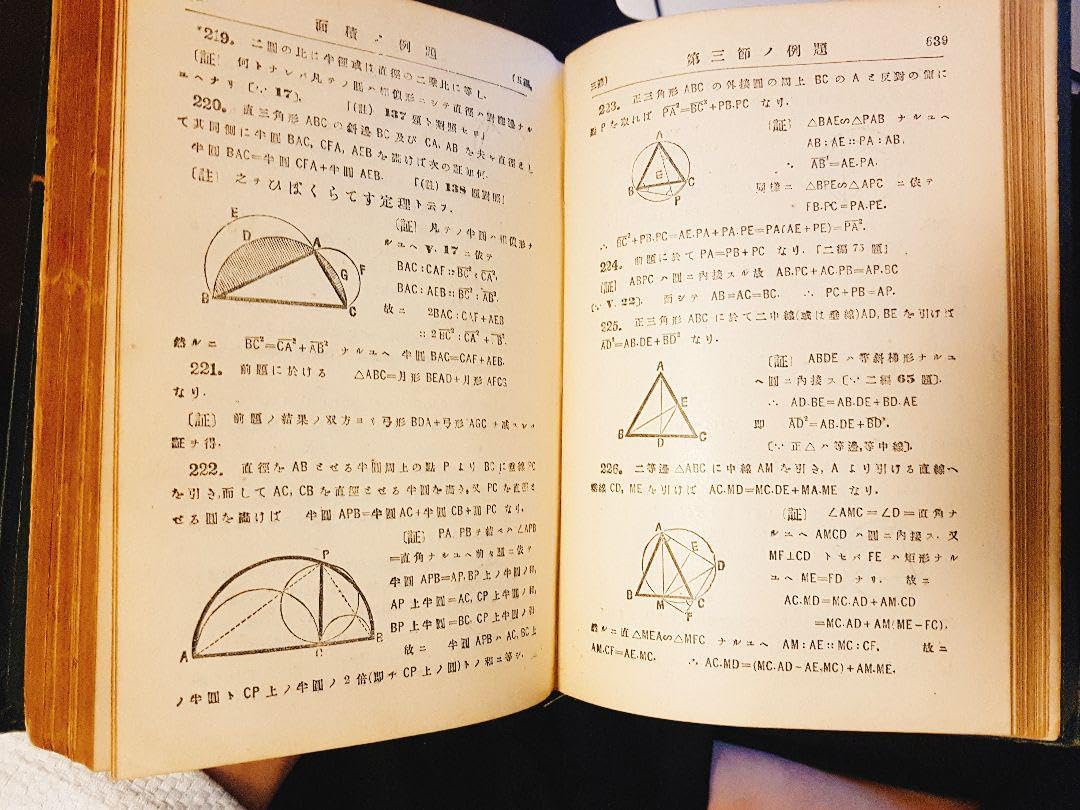 面積ノ例題
*219. 二圓の比は半徑或は直徑の二乘比に等し.
〔証〕 何トナレバ凡テノ圓ハ相似形ニシテ直徑ハ對應邊ナル
ユヘナリ〔∵ 17〕. 「(註) 137 題ト對照セヨ」
220. 直三角形 ABC の斜邊 BC 及び CA, AB を夫々直徑とし
て其同側に半圓 BAC, CFA, AEB を畵けば次の証如何.
半圓 BAC=半圓 CFA+半圓 AEB. 「(註) 138 題對照」
〔註〕 之ヲひぽくらてす定理ト云フ.
E
D
A
F
G
B
C
〔証〕 凡テノ半圓ハ相似形ナ
ルユヘ V. 17 ニ依テ
BAC:CAF::BC²:CA²,
BAC:AEB::BC²:AB².
故ニ 2BAC:CAF+AEB
::2BC²:CA²+AB².
然ルニ BC²=CA²+AB² ナルユヘ 半圓 BAC=CAF+AEB.
221. 前題に於ける △ABC=月形 BEAD+月形 AFCG
なり.
〔証〕 前題ノ結果ノ双方ヨリ弓形 BDA+弓形 AGC ヲ減スレハ
証ヲ得.
222. 直徑を AB とせる半圓周上の點 P より BC に垂線 PC
を引き, 而して AC, CB を直徑とせる半圓を畵き, 又 PC を直徑と
せる圓を畵けば 半圓 APB=半圓 AC+半圓 CB+圓 PC なり.
P
A
C
B
〔証〕 PA, PB ヲ結ベハ ∠APB
=直角ナルユヘ前々題ニ依テ
半圓 APB=AP, BP 上ノ半圓ノ和,
AP 上半圓=AC, CP 上半圓ノ和,
BP 上半圓=BC, CP 上半圓ノ和
故ニ 半圓 APB ハ AC, BC 上
ノ半圓ト CP 上ノ半圓ノ 2 倍(即チ CP 上ノ圓)トノ和ニ等シ.
第三節ノ例題
639
223. 正三角形 ABC の外接圓の周上 BC の A と反對の側に
點 P を取れば PA²=BC²+PB.PC なり.
A
E
B
C
P
〔証〕 △BAE∽△PAB ナルユヘ
AB:AE::PA:AB,
∴ AB²=AE.PA.
同樣ニ △BPE∽△APC ニ依テ
PB.PC=PA.PE.
∴ BC²+PB.PC=AE.PA+PA.PE=PA(AE+PE)=PA².
224. 前題に於て PA=PB+PC なり. 「二編 75 題」
〔証〕 ABPC ハ圓ニ內接スル故 AB.PC+AC.PB=AP.BC
〔∵ V. 22〕. 而シテ AB=AC=BC. ∴ PC+PB=AP.
225. 正三角形 ABC に於て二中線(或は垂線) AD, BE を引けば
AD²=AB.DE+BD² なり.
A
E
B
D
C
〔証〕 ABDE ハ等斜梯形ナルユ
ヘ圓ニ內接ス〔∵ 二編 65 題〕.
∴ AD.BE=AB.DE+BD.AE
即 AD²=AB.DE+BD².
〔∵ 正△ハ等邊, 等中線〕.
226. 二等邊 △ABC に中線 AM を引き, A より引ける直線へ
垂線 CD, ME を引けば AC.MD=MC.DE+MA.ME なり.
A
E
D
B
M
C
F
〔証〕 ∠AMC=∠D=直角ナ
ルユヘ AMCD ハ圓ニ內接ス. 又
MF⊥CD トセバ FE ハ矩形ナル
ユヘ ME=FD ナリ. 故ニ
AC.MD=MC.AD+AM.CD
=MC.AD+AM(ME-FC).
然ルニ直△MEA∽△MFC ナルユヘ AM:AE::MC:CF, 故ニ
AM.CF=AE.MC. ∴ AC.MD=(MC.AD-AE.MC)+AM.ME.